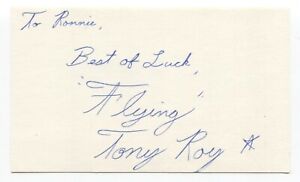 To Ronnie,
Best of Luck,
"Flying"
Tony Roy ☆